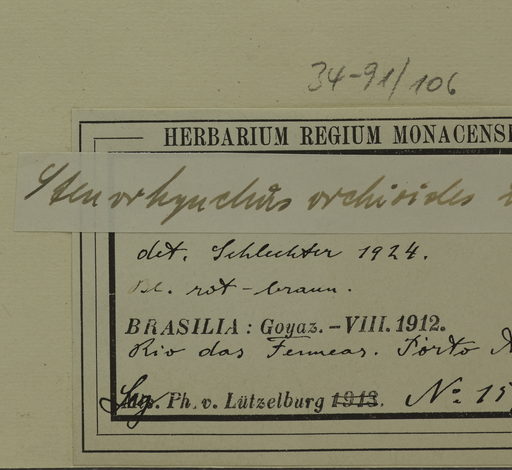 34-91/106
HERBARIUM REGIUM MONACENS
Stenorhynchus orchioides
det. Schlechter 1924.
Bl. rot-braun.
BRASILIA: Goyaz. – VIII. 1912.
Rio das Femeas. Porto
Leg. Ph. v. Lützelburg 1913. No. 15